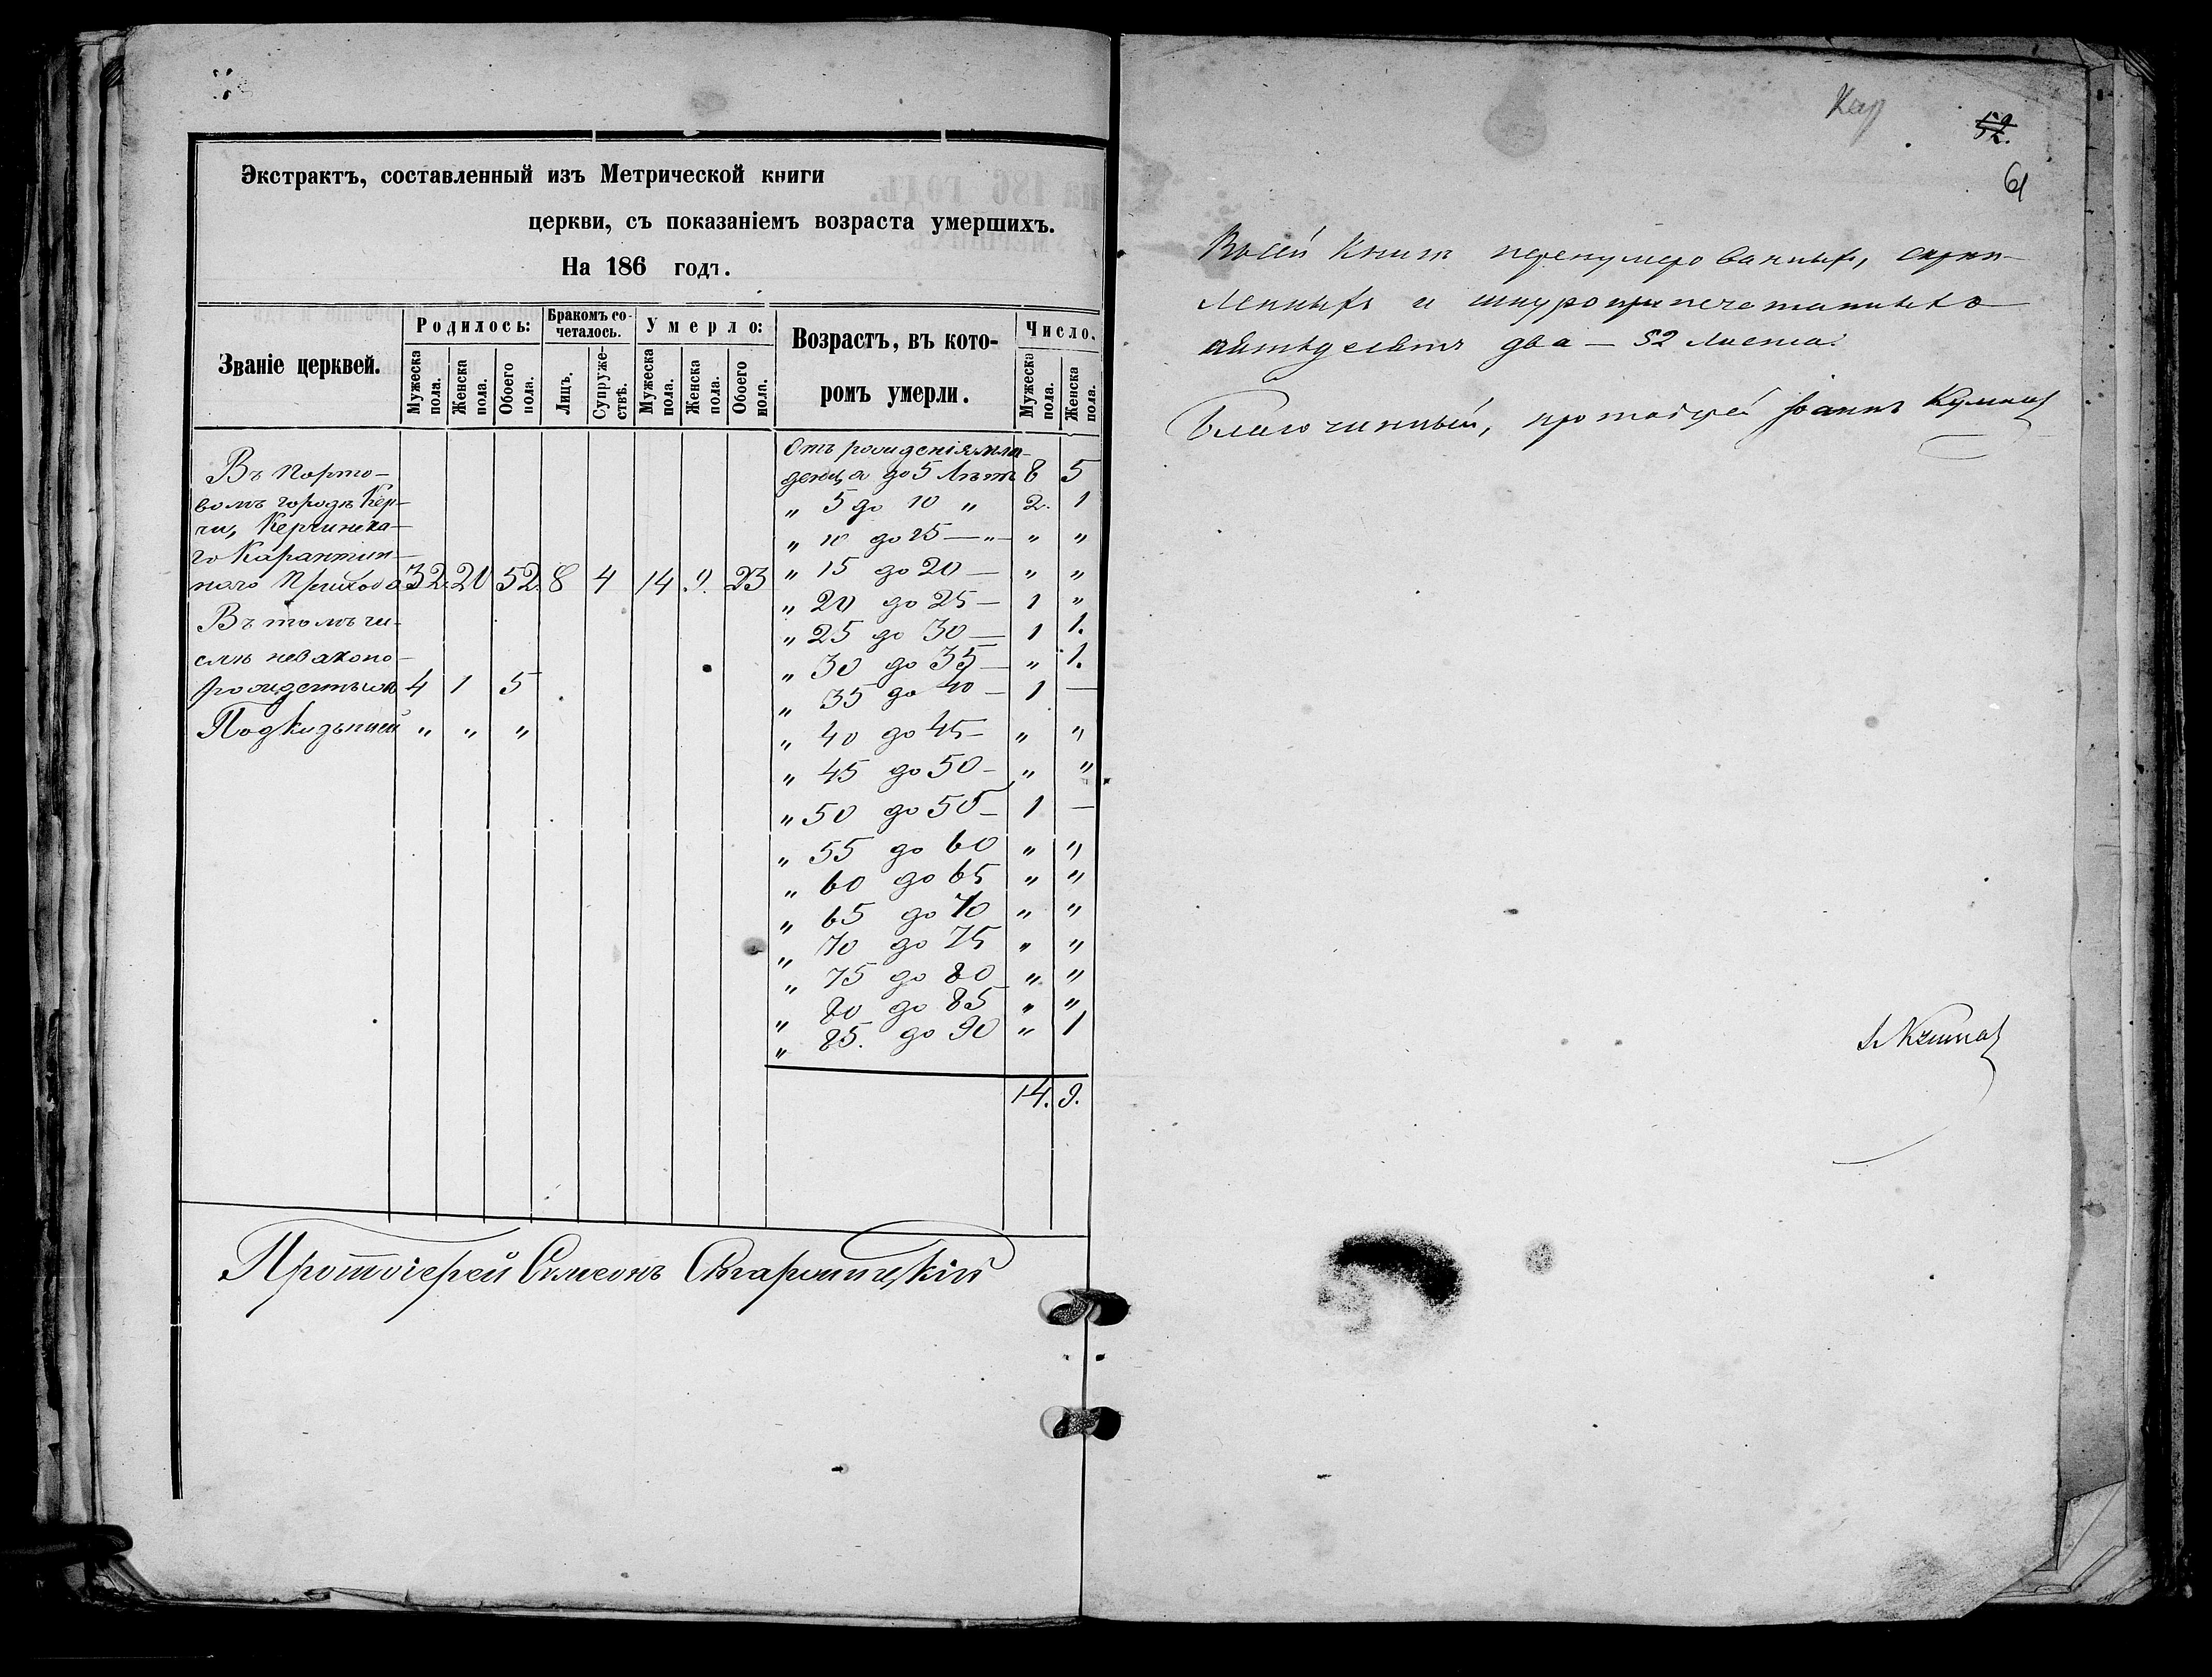 Экстрактъ, составленный изъ Метрической книги
церкви, съ показаніемъ возраста умершихъ.
На 186 годъ.
Званіе церквей.
Родилось:
Мужеска пола.
Женска пола.
Обоего пола.
Бракомъ сочеталось.
Лицъ.
Супружествъ.
Умерло:
Мужеска пола.
Женска пола.
Обоего пола.
Возрастъ, въ которомъ умерли.
Число.
Мужеска пола.
Женска пола.
Въ порто-
вомъ городѣ Кер-
чи, Керчинска-
го Карантин-
наго Прихода 32. 20 52. 8 4 14 9. 23
Въ томъ чи-
слѣ незаконо-
рожденныхъ 4 1 5
Подкидышей " " "
Отъ рожденія мла-
денца до 5 лѣтъ 8 5
" 5 до 10 " 2. 1
" 10 до 15 — " — " "
" 15 до 20 — " "
" 20 до 25 — 1 "
" 25 до 30 — 1 1.
" 30 до 35 — " 1.
" 35 до 40 — 1 —
" 40 до 45 — " "
" 45 до 50 — " "
" 50 до 55 — 1 —
" 55 до 60 " "
" 60 до 65 " "
" 65 до 70 " "
" 70 до 75 " "
" 75 до 80 " "
" 80 до 85 " "
" 85. до 90 " 1
14. 9.
Протоіерей Симеонъ
52.
61
Всей книги перенумерованныхъ, скрѣп-
ленныхъ и шнуроприпечатанныхъ
пятьдесятъ два — 52 листа.
Благочинный, протоіерей Іоаннъ